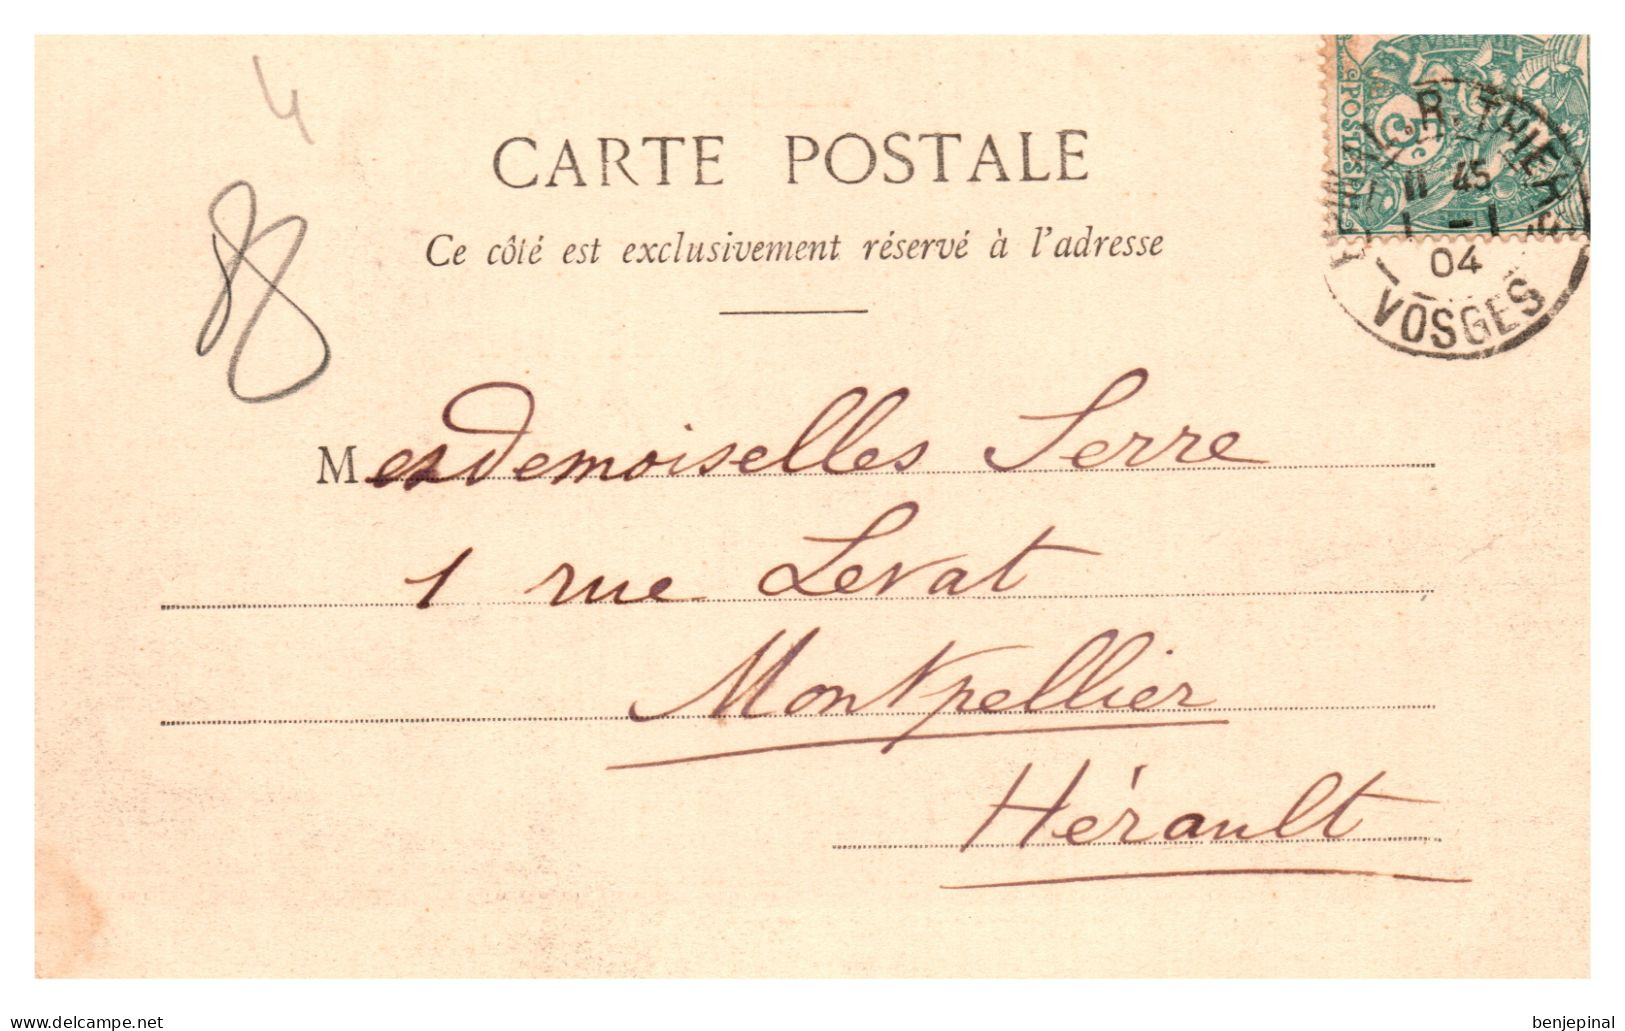 4
88
CARTE POSTALE
Ce côté est exclusivement réservé à l'adresse
POSTES
5
EPINAL. R. THIERS
11 45
1 - 1
04
VOSGES
Mesdemoiselles Serre
1 rue Levat
Montpellier
Hérault
www.delcampe.net
benjepinal